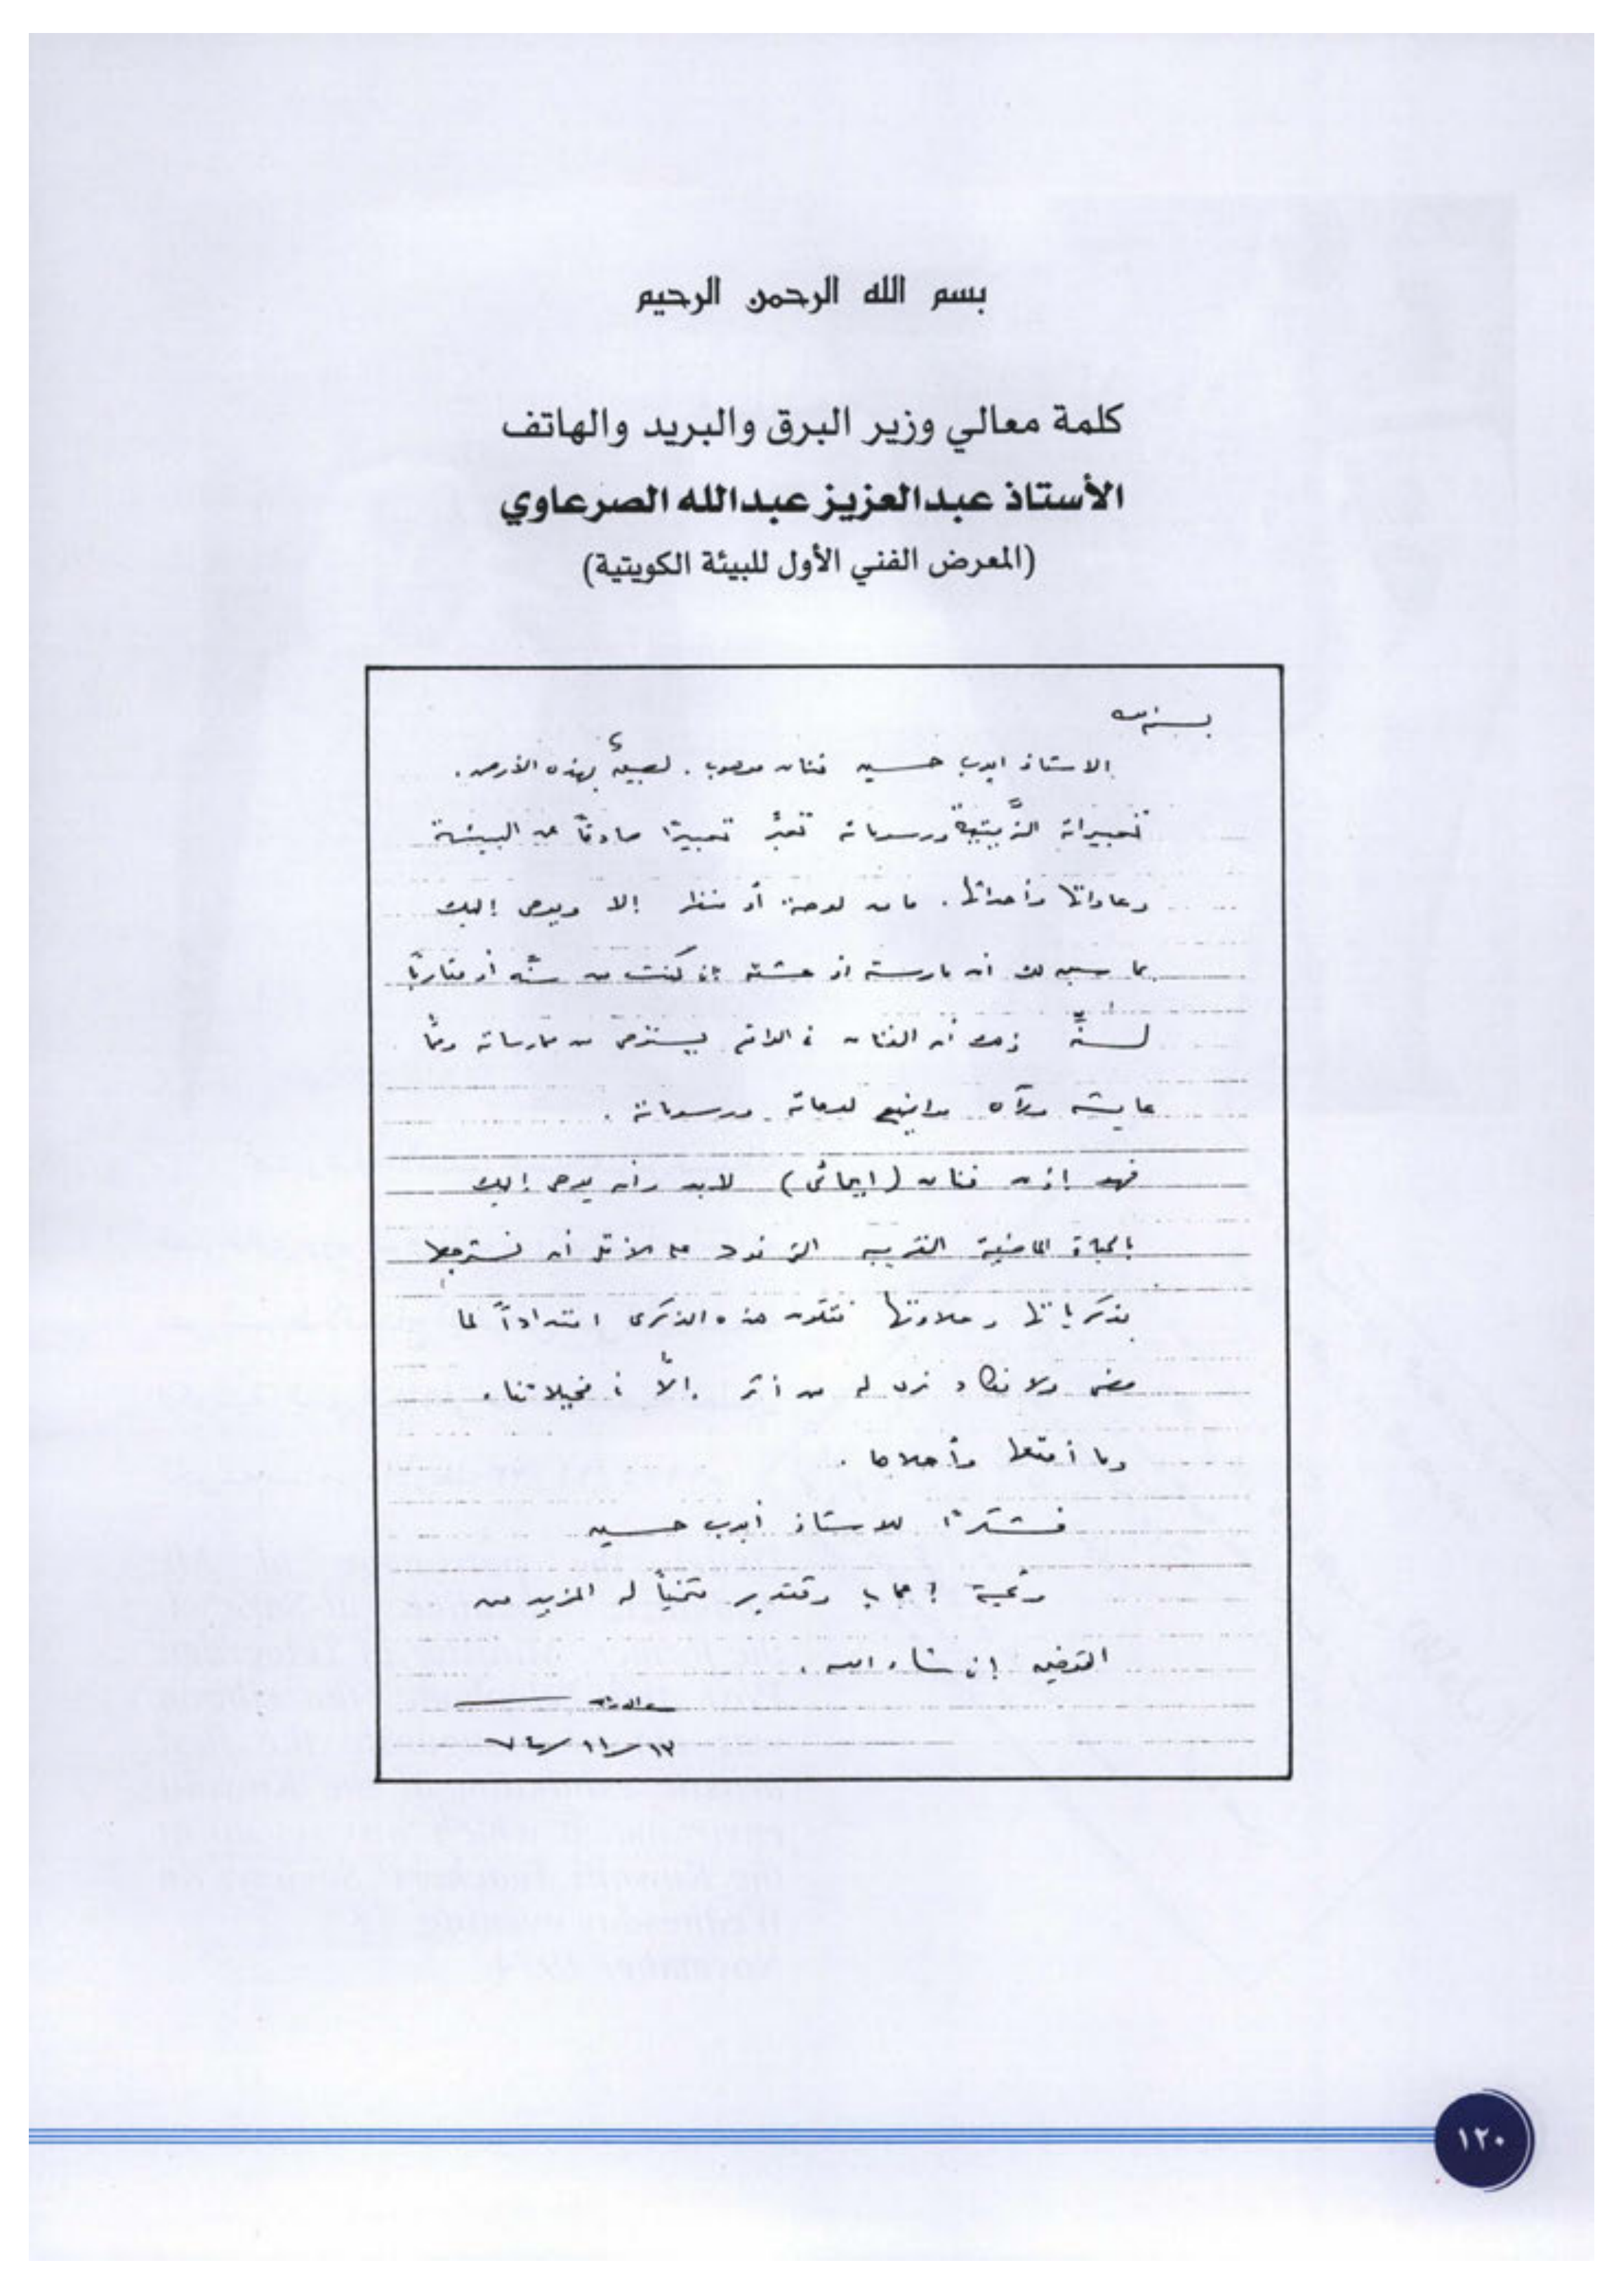 بسم الله الرحمن الرحيم
كلمة معالي وزير البرق والبريد والهاتف
الأستاذ عبدالعزيز عبدالله الصرعاوي
(المعرض الفني الأول للبيئة الكويتية)
الاستاذ ايوب حسين فنان موهوب . لصيق بهذه الأرض .
تعبيراته الزيتية ورسوماته تعبر تعبيرًا صادقاً عن البيئة
وعاداتها وأحداثها . ما من لوحة أو منظر إلا ويوحى إليك
بما سبق لك أن مارسته أو عشته إن كنت من سنّه أو مقاربًا
لسنِّه ذلك أن الفنان في الواقع يستوحى من ممارساته وممّا
عايشه ورآه مواضيع لوحاته ورسوماته .
فهو إذن فنان (ايحائى) لابد وأن يوحى إليك
بالحياة الماضية القريبة التى نود على الأقل أن نسترجعها
بذكرياتها وحلاوتها فتكون هذه الذكرى امتداداً لما
مضى ولا نكاد نرى له من أثر إلاّ في مخيلاتنا .
وما أمتعها وأحلاها .
فشكرًا للاستاذ أيوب حسين
وتحية إعجاب وتقدير متمنياً له المزيد من
التوفيق إن شاء الله .
١٣/١١/٧٤
١٢٠